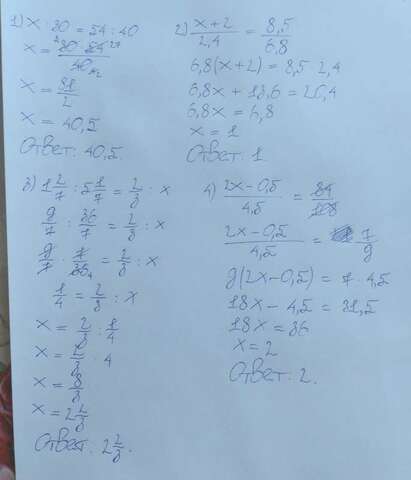 1) x : 30 = 54 : 40
x = 30 · 54 27 / 40 2
x = 81/2
x = 40,5
Ответ: 40,5.
2) x+2 / 2,4 = 8,5 / 6,8
6,8(x+2) = 8,5 · 2,4
6,8x + 13,6 = 20,4
6,8x = 6,8
x = 1
Ответ: 1.
3) 1 2/7 : 5 1/7 = 2/3 : x
9/7 : 36/7 = 2/3 : x
9/7 · 7/36 4 = 2/3 : x
1/4 = 2/3 : x
x = 2/3 : 1/4
x = 2/3 · 4
x = 8/3
x = 2 2/3
Ответ: 2 2/3.
4) 2x−0,5 / 4,5 = 84 / 108
2x−0,5 / 4,5 = 7 / 9
9(2x−0,5) = 7 · 4,5
18x − 4,5 = 31,5
18x = 36
x = 2
Ответ: 2.